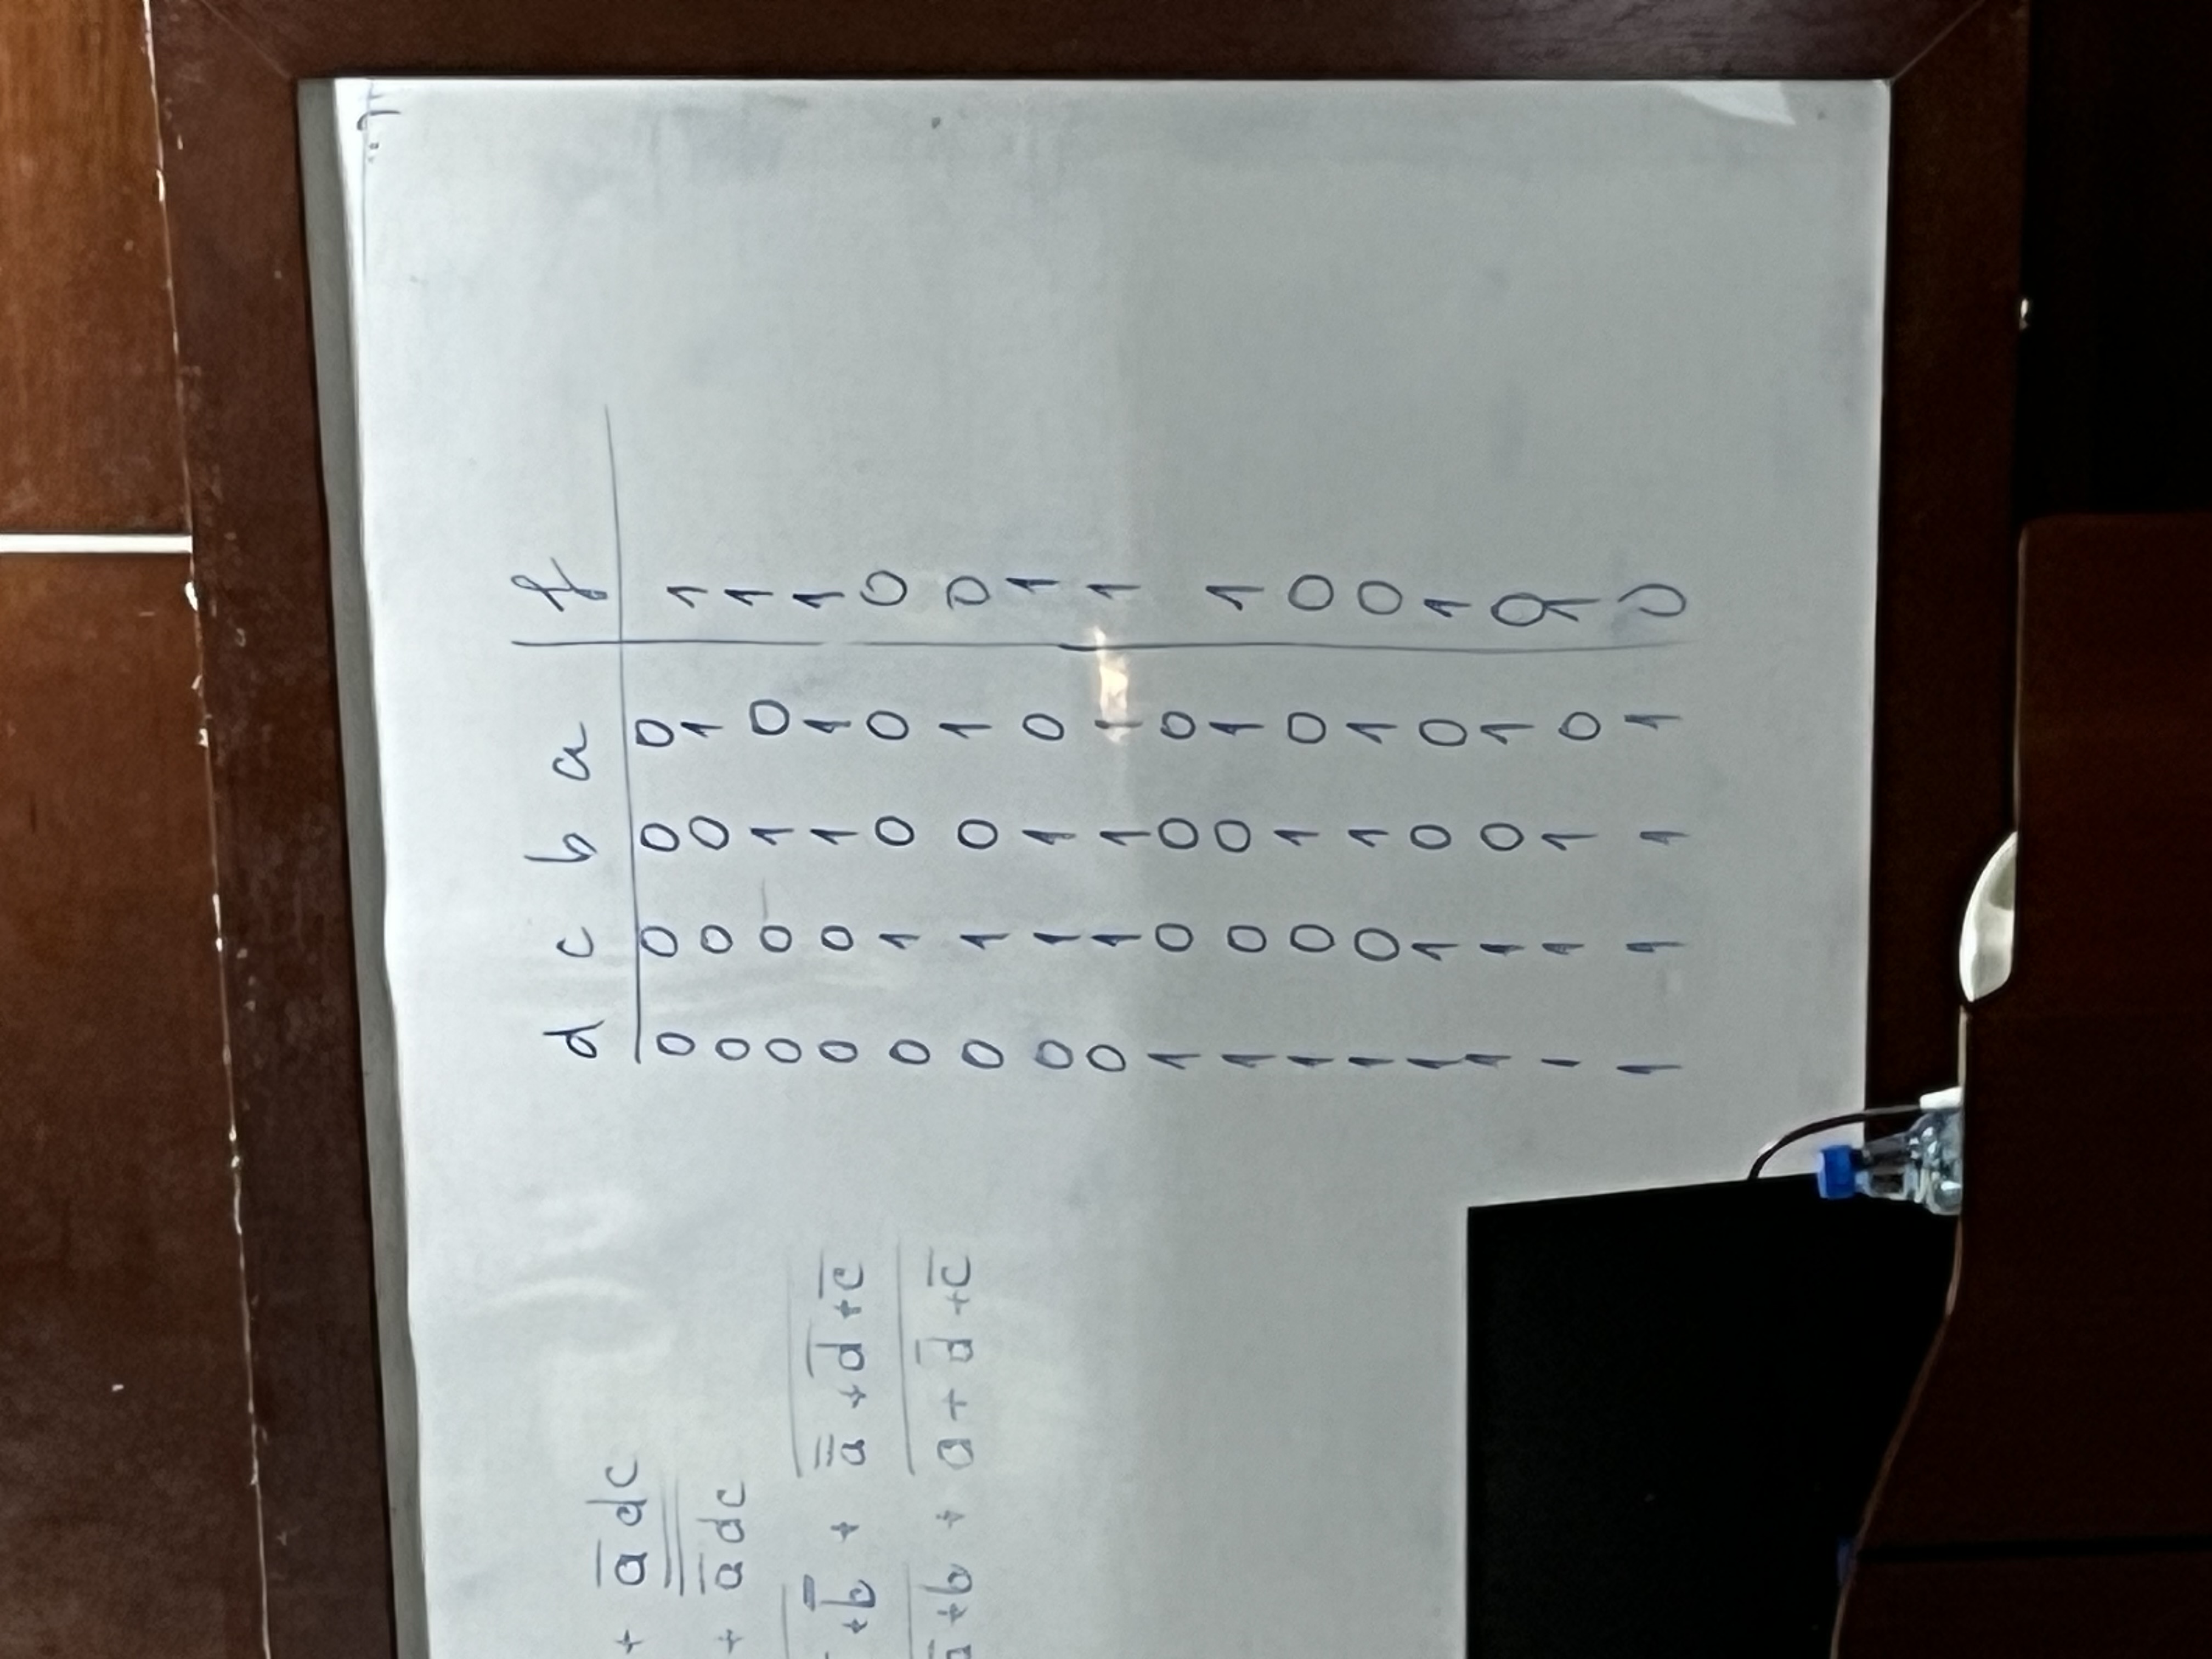 + a̅ d c
+ a̿ d c
+ b̿ + a̿ + d̅ + c̅
a̅ + b + a + d̅ + c̅
d c b a | f
0 0 0 0
0 0 0 1 1
0 0 1 0 1
0 0 1 1 1
0 1 0 0 0
0 1 0 1 0
0 1 1 0 1
0 1 1 1 1
1 0 0 0
1 0 0 1 1
1 0 1 0 0
1 0 1 1 0
1 1 0 0 1
1 1 0 1 0
1 1 1 0 1
1 1 1 1 0